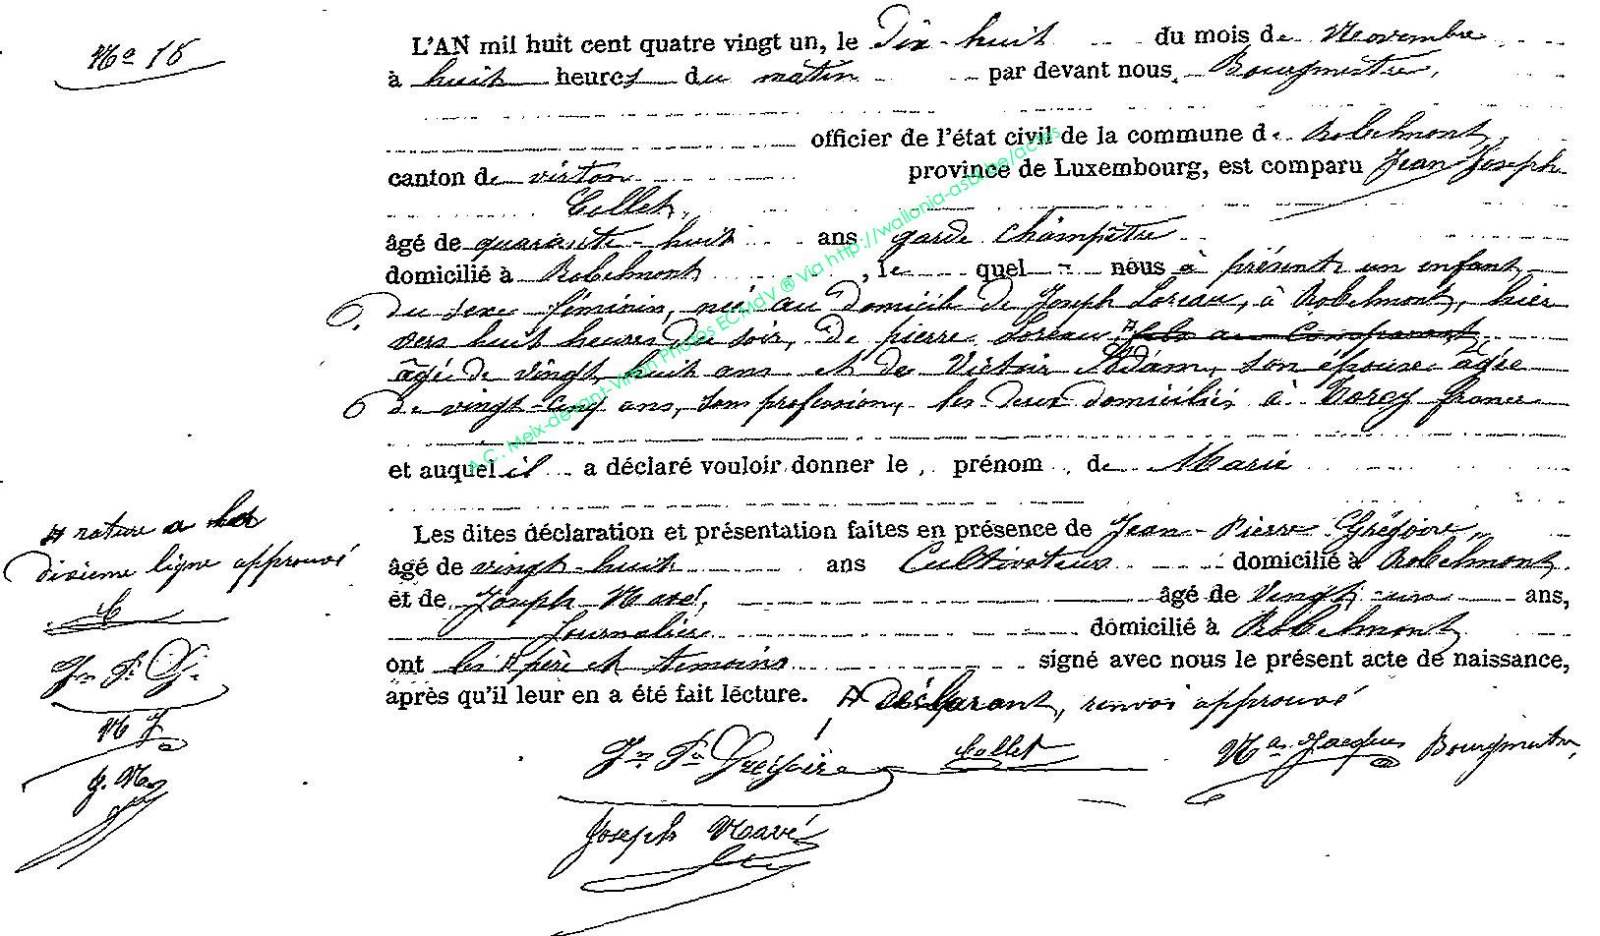 Nº 16
L'AN mil huit cent quatre vingt un, le Dix-huit du mois de Novembre
à huit heures du matin par devant nous, Bourgmestre,
officier de l'état civil de la commune de Robelmont,
canton de virton province de Luxembourg, est comparu Jean Joseph
Collet,
âgé de quarante-huit ans garde champêtre
domicilié à Robelmont, le quel nous a présenté un enfant
du sexe féminin, née au domicile de Joseph Loreau, à Robelmont, hier
vers huit heures du soir, de pierre Loreau fils au Comparant
âgé de vingt huit ans et de Victoir Adam, son épouse âgée
de vingt-cinq ans, sans profession, les deux domiciliés à Torcy france
et auquel il a déclaré vouloir donner le prénom de Marie
Les dites déclaration et présentation faites en présence de Jean-Pierre Grégoire
âgé de vingt-huit ans Cultivateur domicilié à Robelmont
et de Joseph Mavé, âgé de vingt-un ans,
Journalier domicilié à Robelmont
ont les père et temoins signé avec nous le présent acte de naissance,
après qu'il leur en a été fait lecture. déclarant, renvoi approuvé
rature a la
dixieme ligne approuvé
C
Jn Pre G.
N J
J. M
Jn Pre Gregoire Collet Nas Jacques Bourgmestre,
Joseph Mavé
A.C. Meix-devant-Virton Photos ECMdV ® Via http://wallonia-asbl.be/actes